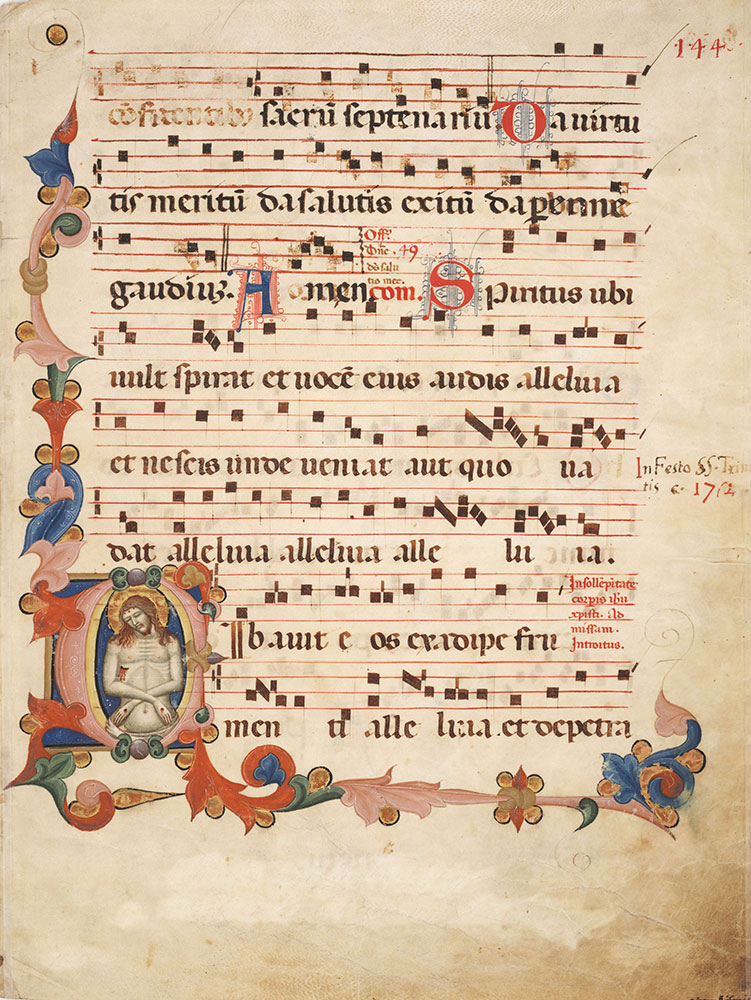 ·144·
cōfitentibꝰ sacrū septenariū Da uirtu
tis meritū da salutis exitū da ꝑenne
gaudiuꝫ. Amen com. Spiritus ubi
Off.
49
dn̄s salu
tio mec.
uult spirat et uocē eius audis alleluia
et nescis unde ueniat aut quo ua
In Festo SS. Trini
tis c. 171
dat alleluia alleluia alle lu ia.
In sollēpitate
corpis ihu
xpisti. Ad
missam.
Introitus.
Cibauit e os ex adipe fru
men ti alle luia. et de petra